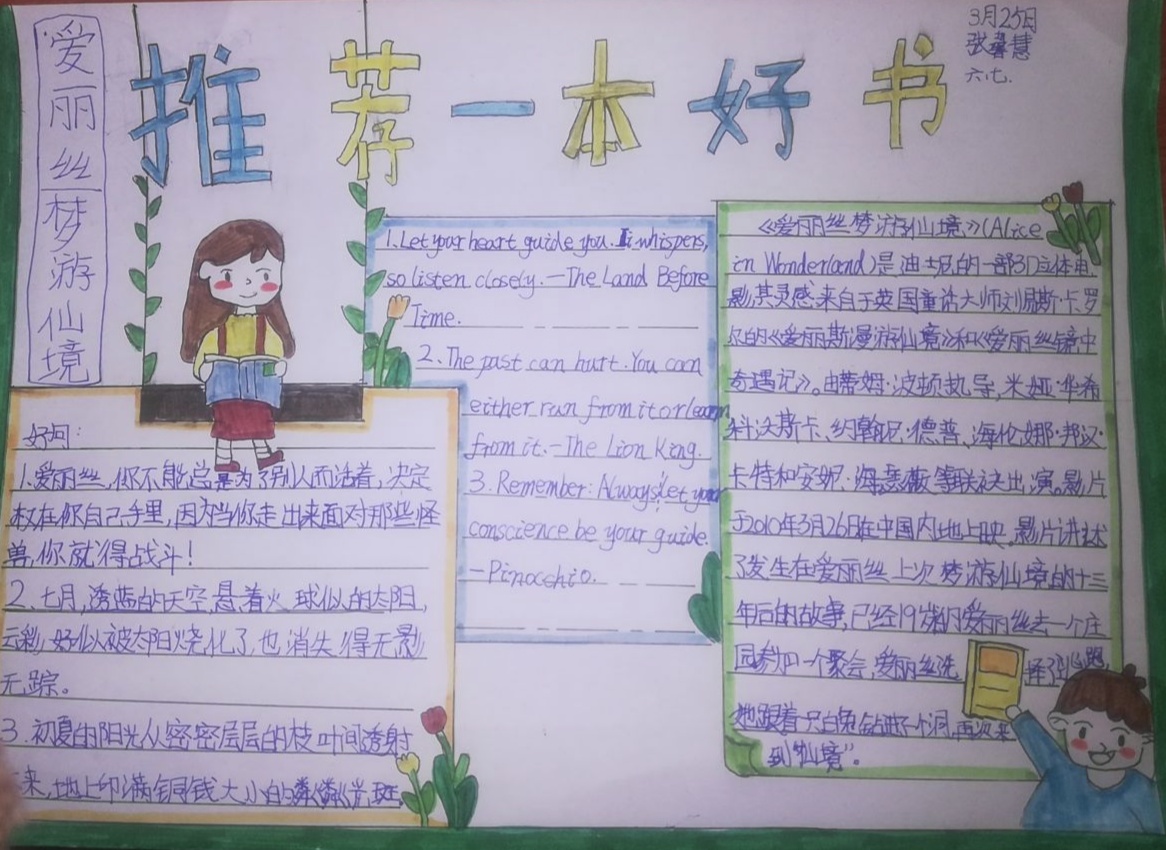 爱丽丝梦游仙境
推荐一本好书
3月25日
张馨慧
六.七.
好句:
1.爱丽丝,你不能总是为了别人而活着,决定
权在你自己手里,因为当你走出来面对那些怪
兽,你就得战斗!
2、七月,透蓝的天空,悬着火球似的太阳,
云彩好似被太阳烧化了,也消失得无影
无踪。
3.初夏的阳光从密密层层的枝叶间透射
来,地上印满铜钱大小的粼粼光斑.
1.Let your heart guide you. It whispers,
so listen closely. —The Land Before
Time.
2.The past can hurt. You can
either run from it or learn
from it. -The Lion King.
3. Remember: Always let your
conscience be your guide.
-Pinocchio.
《爱丽丝梦游仙境》(Alice
in Wonderland)是迪士尼的一部3D立体电
影,其灵感来自于英国童话大师刘易斯·卡罗
尔的《爱丽斯漫游仙境》和《爱丽丝镜中
奇遇记》。由蒂姆·波顿执导,米娅·华希
科沃斯卡、约翰尼·德普、海伦娜·邦汉·
卡特和安妮·海瑟薇等联袂出演。影片
于2010年3月26日在中国内地上映。影片讲述
了发生在爱丽丝上次梦游仙境的十三
年后的故事,已经19岁的爱丽丝去一个庄
园参加一个聚会,爱丽丝选择了逃跑
她跟着一只白兔钻进了个洞,再次来
到“仙境”。